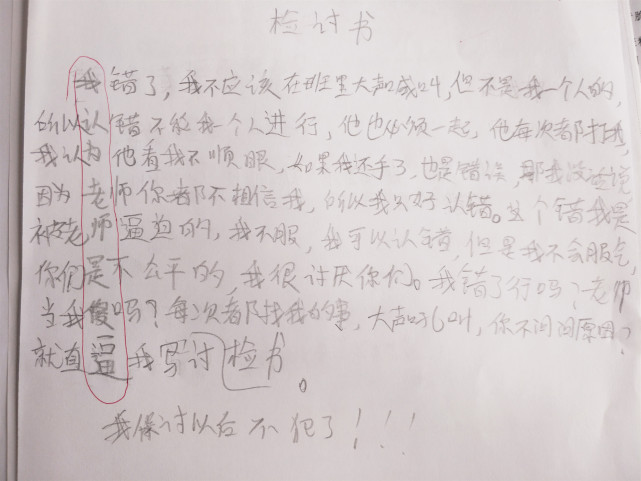 检讨书
我错了，我不应该在班里大声喊叫，但不是我一个人的，
所以认错不能我一个人进行，他也必须一起，他每次都打我，
我认为他看我不顺眼，如果我还手了，也是错误，那我没还说
因为老师你都不相信我，所以我只好认错。这个错我是
被老师逼迫的，我不服，我可以认错，但是我不会服气
你们是不公平的，我很讨厌你们。我错了行吗？老师
当我傻吗？每次都找我的事，大声吼叫，你不问问原因？
就直逼我写讨检书。
我保讨以后不犯了！！！